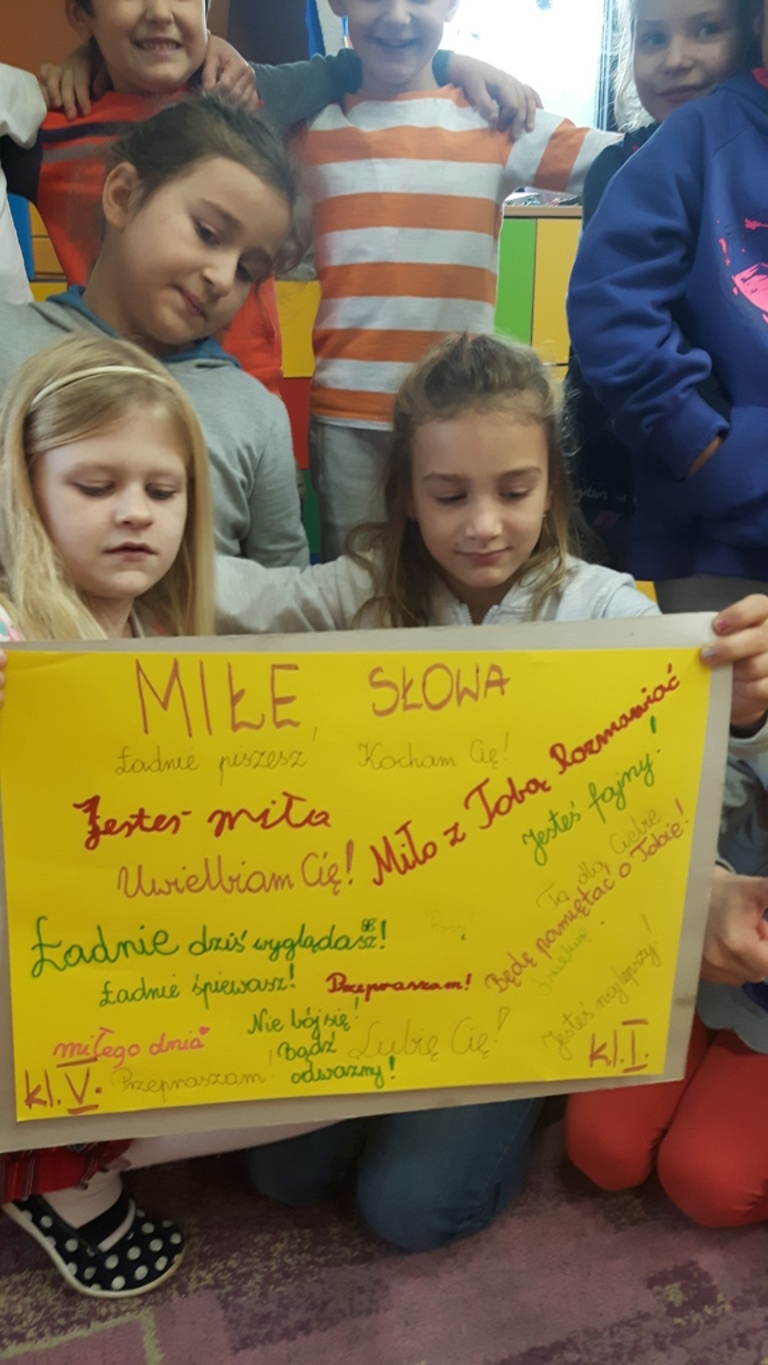 MIŁE SŁOWA
Ładnie piszesz! Kocham Cię!
Jesteś miła
Miło z Tobą Rozmawiać
Jesteś fajny!
Uwielbiam Cię!
Ta dla Ciebie
Będę pamiętać o Tobie!
Ładnie dziś wyglądasz!
Ładnie śpiewasz!
Przepraszam!
Nie bój się!
Bądź
odważny!
Lubię Cię!
Jesteś najlepszy!
miłego dnia
Przepraszam!
kl. V.
kl. I.